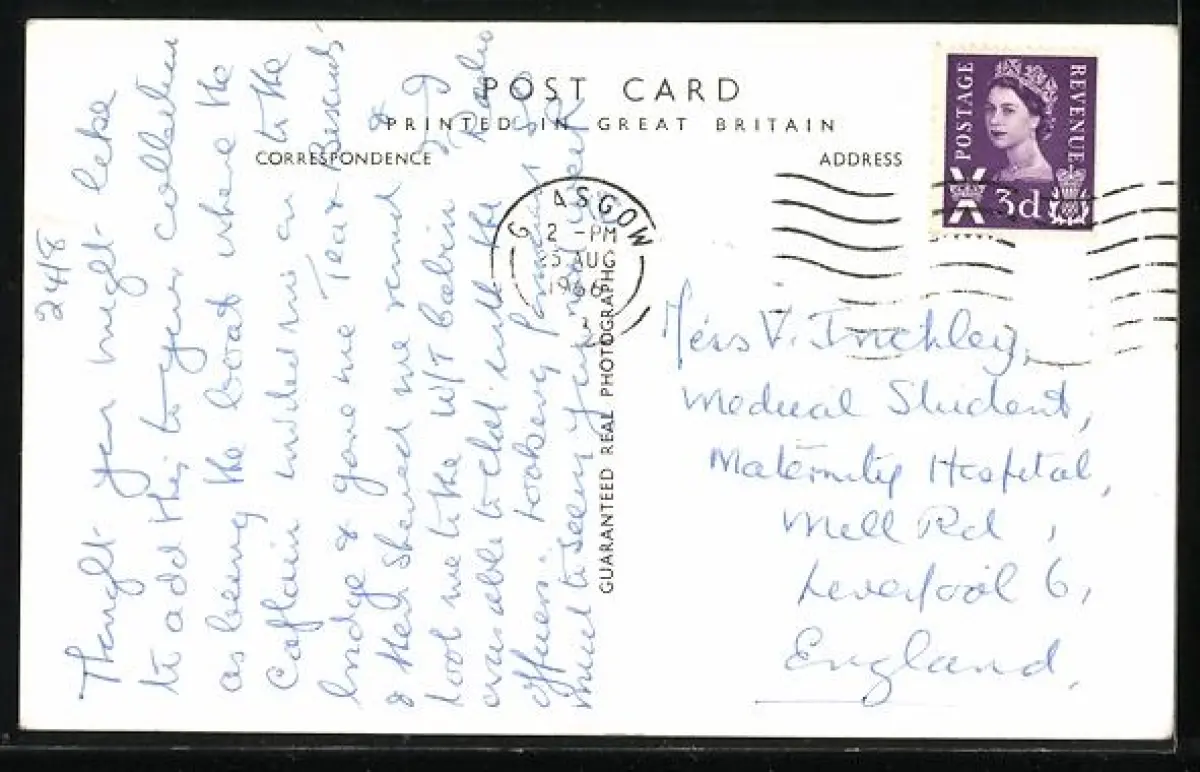 POST CARD
PRINTED IN GREAT BRITAIN
CORRESPONDENCE
ADDRESS
POSTAGE
REVENUE
3d
GLASGOW
2 -PM
25 AUG
1966
GUARANTEED REAL PHOTOGRAPH
24/8
Thought you might like
to add this to your collection
as being the boat where the
Captain invited me on to the
bridge & gave me Tea & Biscuits
& then showed me round &
took me to the W/T cabin & I
was able to chat with the Radio
officers. Looking forward so
much to seeing you next week
Miss V. Inchley,
Medical Student,
Maternity Hospital,
Mill Rd,
Liverpool 6,
England.